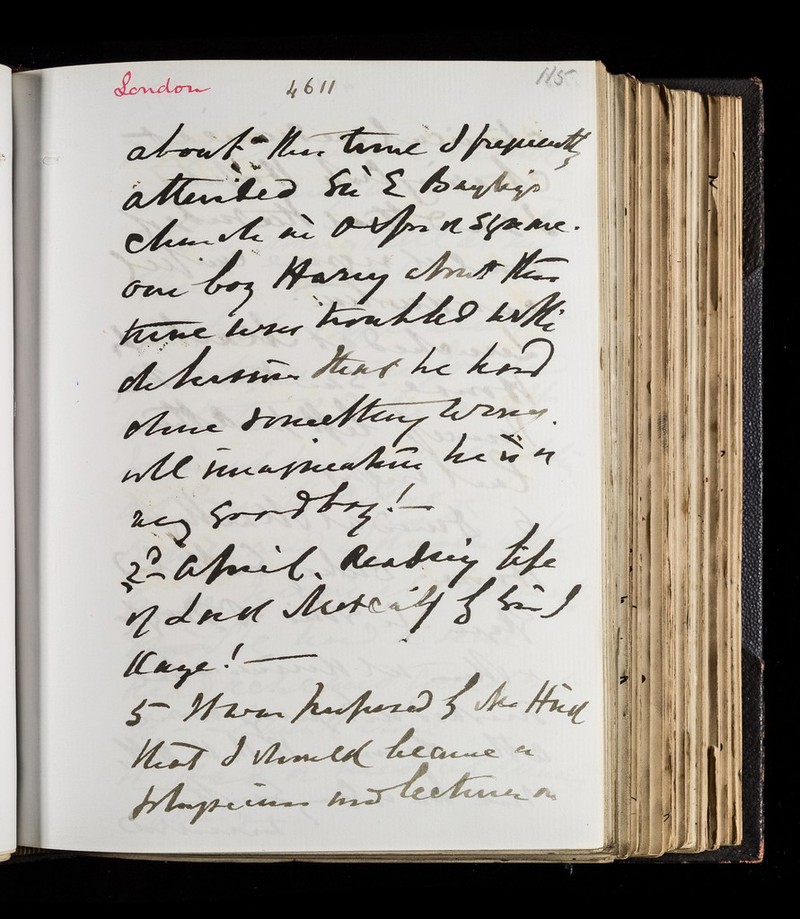 London 4611 115
about this time I frequently
attended Sir E Bayley's
church in Oxford Square.
our boy Harry about this
time was troubled with
delusions that he had
done something wrong.
all imagination he is a
very good boy! —
2d April. Reading life
of Lord Metcalf by Sir J
Kaye! —
5 It was proposed by Mr Hird
that I should became a
physician and lecturer on